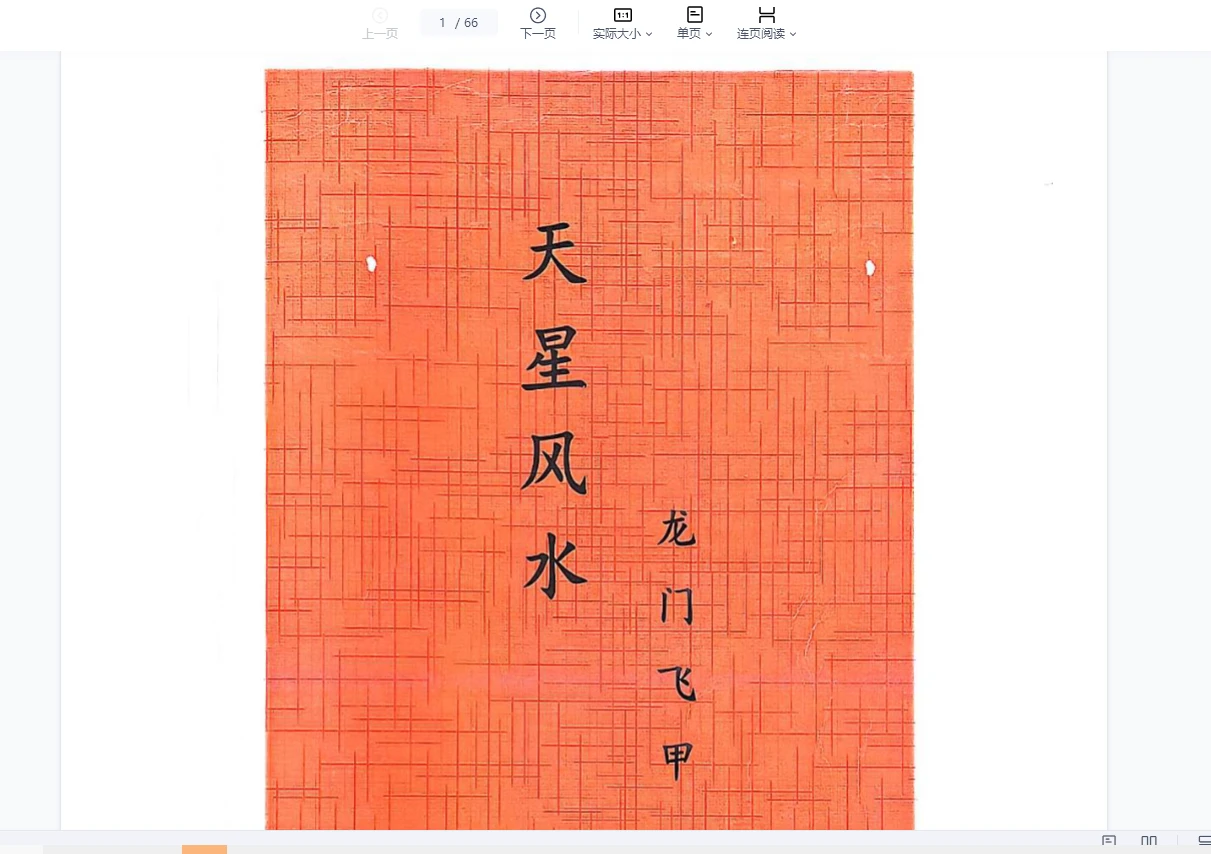 上一页
1 / 66
下一页
1:1
实际大小
单页
连页阅读
天星风水
龙门飞甲